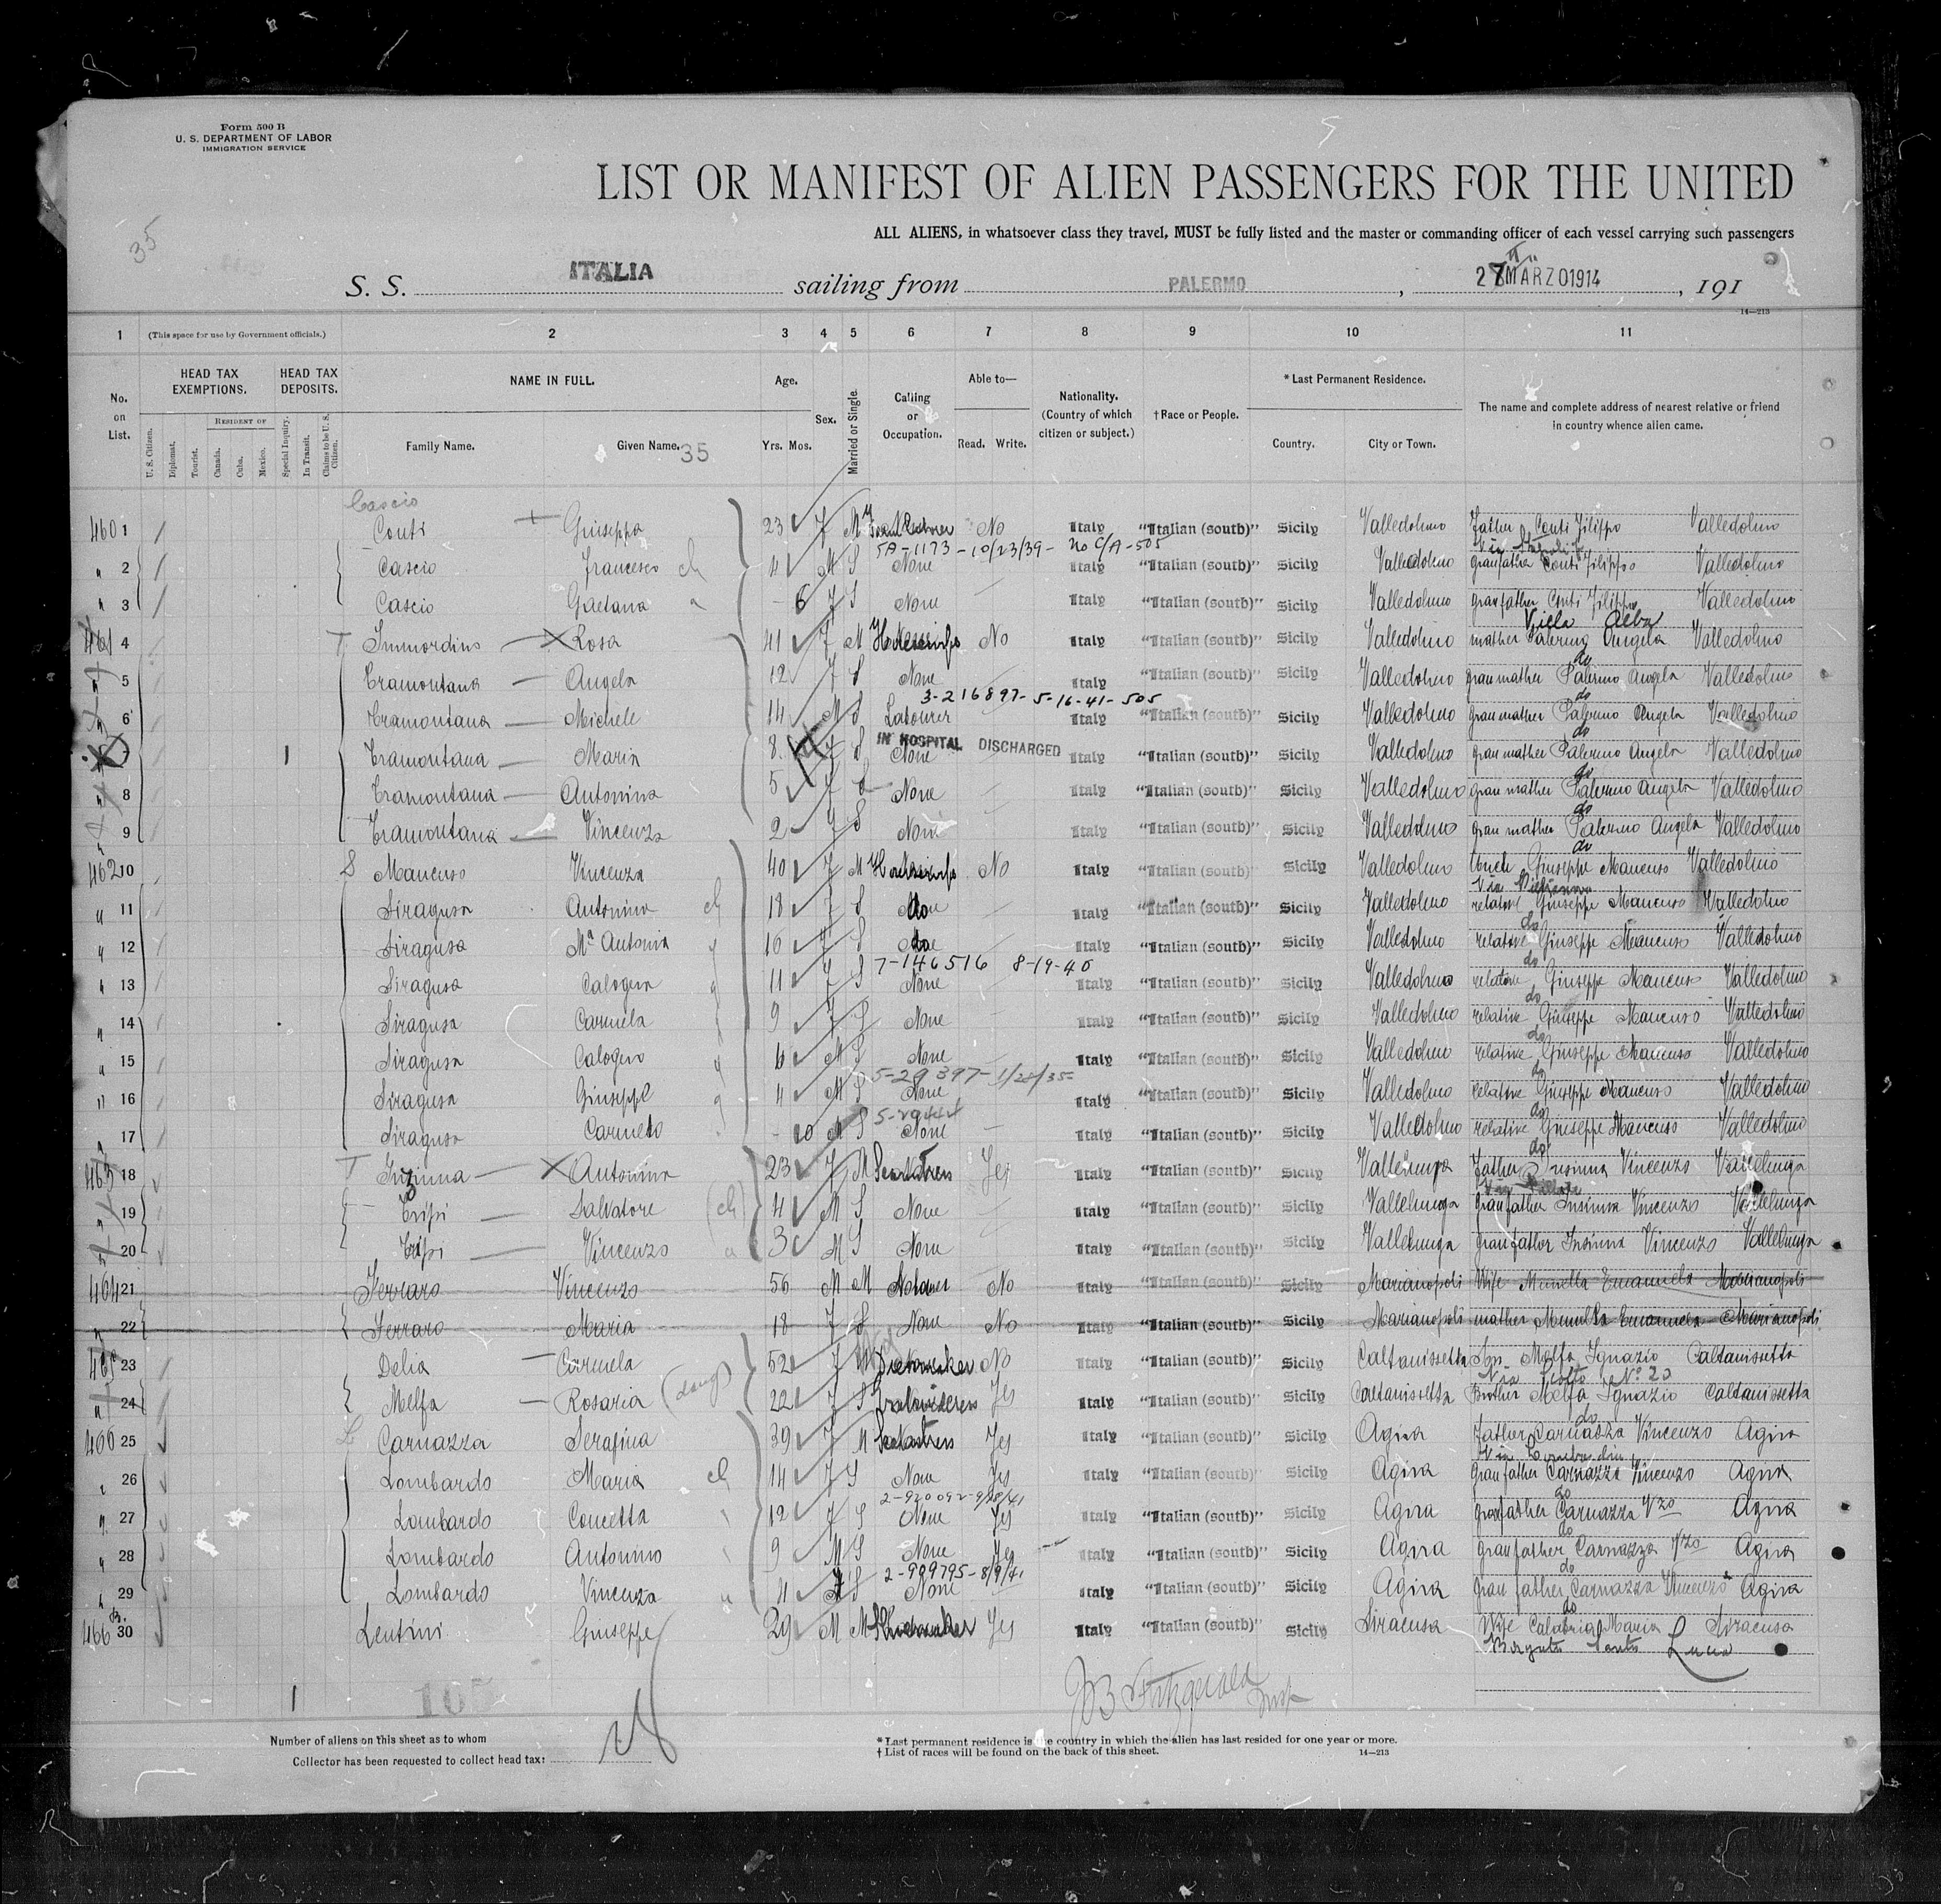 Form 500 B
U. S. DEPARTMENT OF LABOR
IMMIGRATION SERVICE
35
LIST OR MANIFEST OF ALIEN PASSENGERS FOR THE UNITED
ALL ALIENS, in whatsoever class they travel, MUST be fully listed and the master or commanding officer of each vessel carrying such passengers
S. S. ITALIA sailing from PALERMO, 27 MARZO 1914, 191
14—213
1 (This space for use by Government officials.) 2 3 4 5 6 7 8 9 10 11
No. on List. HEAD TAX EXEMPTIONS. HEAD TAX DEPOSITS. NAME IN FULL. Age. Sex. Married or Single. Calling or Occupation. Able to— Nationality. (Country of which citizen or subject.) †Race or People. *Last Permanent Residence. The name and complete address of nearest relative or friend in country whence alien came.
U. S. Citizen. Diplomat. Tourist. RESIDENT OF Canada. Cuba. Mexico. Special Inquiry. In Transit. Claims to be U. S. Citizen. Family Name. Given Name. 35 Yrs. Mos. Read. Write. Country. City or Town.
Cascio
460 1 Conti Giuseppa 23 F M No Italy "Italian (south)" Sicily Valledolmo Father Conti Filippo Valledolmo
5A-1173-10/23/39- No C/A-505
" 2 Cascio Francesco ch 4 M S None Italy "Italian (south)" Sicily Valledolmo granfather Conti Filippo Valledolmo
" 3 Cascio Gaetana " - 6 F S None Italy "Italian (south)" Sicily Valledolmo granfather Conti Filippo Valledolmo
Villa Alba
461 4 T Immordino X Rosa 41 F M No Italy "Italian (south)" Sicily Valledolmo mother Palermo Angela Valledolmo
do
5 Tramontana Angela 12 F S None Italy "Italian (south)" Sicily Valledolmo gran mather Palermo Angela Valledolmo
3-216897-5-16-41-505 do
6 Tramontana Michele 14 M S Labourer Italy "Italian (south)" Sicily Valledolmo gran mather Palermo Angela Valledolmo
IN HOSPITAL DISCHARGED do
7 1 Tramontana Maria 8 F S None Italy "Italian (south)" Sicily Valledolmo gran mather Palermo Angela Valledolmo
do
" 8 Tramontana Antonina 5 F S None Italy "Italian (south)" Sicily Valledolmo gran mather Palermo Angela Valledolmo
do
" 9 Tramontana Vincenza 2 F S None Italy "Italian (south)" Sicily Valledolmo gran mather Palermo Angela Valledolmo
do
462 10 S Mancuso Vincenza 40 F M No Italy "Italian (south)" Sicily Valledolmo Giuseppe Mancuso Valledolmo
" 11 Siragusa Antonina ch 18 F S do Italy "Italian (south)" Sicily Valledolmo relative Giuseppe Mancuso Valledolmo
do
" 12 Siragusa Ma Antonia " 16 F S do Italy "Italian (south)" Sicily Valledolmo relative Giuseppe Mancuso Valledolmo
7-146516 8-19-40 do
" 13 Siragusa Calogera " 11 F S None Italy "Italian (south)" Sicily Valledolmo relative Giuseppe Mancuso Valledolmo
do
" 14 Siragusa Carmela " 9 F S None Italy "Italian (south)" Sicily Valledolmo relative Giuseppe Mancuso Valledolmo
do
" 15 Siragusa Calogero " 6 M S None Italy "Italian (south)" Sicily Valledolmo relative Giuseppe Mancuso Valledolmo
5-29397-1/28/35- do
" 16 Siragusa Giuseppe " 4 M S None Italy "Italian (south)" Sicily Valledolmo relative Giuseppe Mancuso Valledolmo
do
" 17 Siragusa Carmelo - 10 M S None Italy "Italian (south)" Sicily Valledolmo relative Giuseppe Mancuso Valledolmo
do
463 18 T Inzinna X Antonina 23 F M Yes Italy "Italian (south)" Sicily Vallelunga Father Insinna Vincenzo Vallelunga
" 19 Tripi Salvatore (ch) 4 M S None Italy "Italian (south)" Sicily Vallelunga granfather Insinna Vincenzo Vallelunga
" 20 Tripi Vincenzo 3 M S None Italy "Italian (south)" Sicily Vallelunga granfather Insinna Vincenzo Vallelunga
464 21 Ferraro Vincenzo 56 M M No Italy "Italian (south)" Sicily Marianopoli Wife Emanuela Marianopoli
" 22 Ferraro Maria 18 F S None No Italy "Italian (south)" Sicily Marianopoli mather Emanuela Marianopoli
465 23 Delia Carmela 52 F No Italy "Italian (south)" Sicily Caltanissetta Son Melfa Ignazio Caltanissetta
Via No 20
" 24 Melfa Rosaria (daug) 22 F S Yes Italy "Italian (south)" Sicily Caltanissetta Brother Melfa Ignazio Caltanissetta
do
466 25 Carnazza Serafina 39 F M Yes Italy "Italian (south)" Sicily Agira Father Carnazza Vincenzo Agira
" 26 Lombardo Maria ch 14 F S None Yes Italy "Italian (south)" Sicily Agira granfather Carnazza Vincenzo Agira
do
" 27 Lombardo Concetta 12 F S None Yes Italy "Italian (south)" Sicily Agira granfather Carnazza Vzo Agira
do
" 28 Lombardo Antonino 9 M S None Yes Italy "Italian (south)" Sicily Agira granfather Carnazza Vzo Agira
2-909795-8/9/41 do
" 29 Lombardo Vincenza 4 F S None Italy "Italian (south)" Sicily Agira gran father Carnazza Vincenzo Agira
do
466 B. 30 Lentini Giuseppe 29 M M Shoemaker Yes Italy "Italian (south)" Sicily Siracusa Wife Calabria Maria Siracusa
Santa Lucia
1 105 J B Fitzgerald Insp
Number of aliens on this sheet as to whom
Collector has been requested to collect head tax:
*Last permanent residence is the country in which the alien has last resided for one year or more.
†List of races will be found on the back of this sheet. 14—213